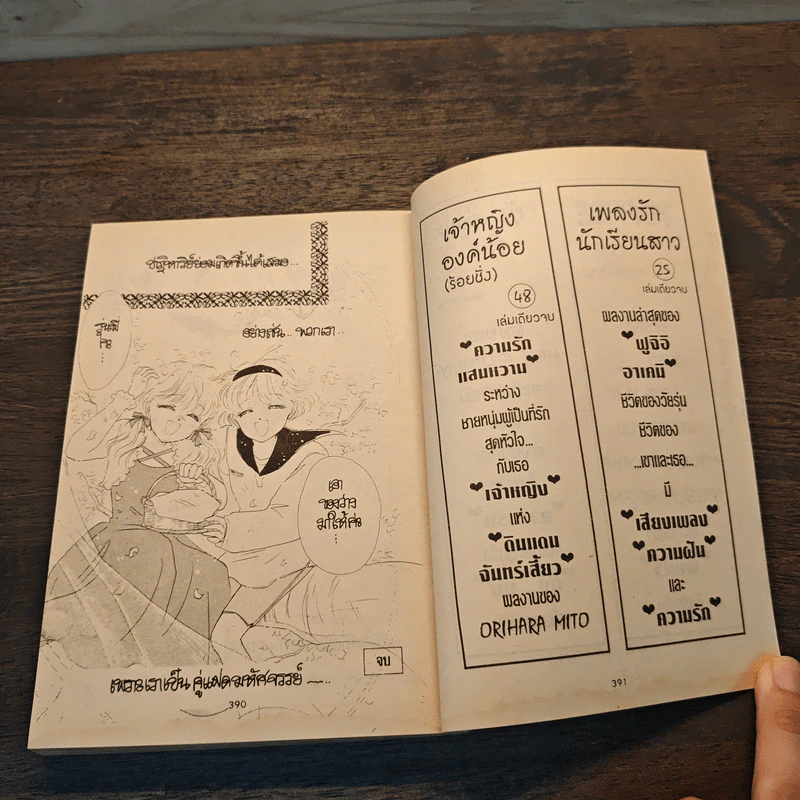 ปาฏิหาริย์ย่อมเกิดขึ้นได้เสมอ...
อย่างเช่น... พวกเรา..
รุ่นพี่
คะ
...
เอา
ของว่าง
มาให้ค่ะ
...
จบ
เพราะเราเป็น คู่แฝดมหัศจรรย์
390
เจ้าหญิง
องค์น้อย
(ร้อยชั่ง)
48
เล่มเดียวจบ
❤ความรัก
แสนหวาน❤
ระหว่าง
ชายหนุ่มผู้เป็นที่รัก
สุดหัวใจ...
กับเธอ
❤เจ้าหญิง❤
แห่ง
❤ดินแดน
จันทร์เสี้ยว❤
ผลงานของ
ORIHARA MITO
เพลงรัก
นักเรียนสาว
25
เล่มเดียวจบ
ผลงานล่าสุดของ
❤ฟูจิอิ
อาเคมิ❤
ชีวิตของวัยรุ่น
ชีวิตของ
...เขาและเธอ...
มี
❤เสียงเพลง❤
❤ความฝัน❤
และ
❤ความรัก❤
391